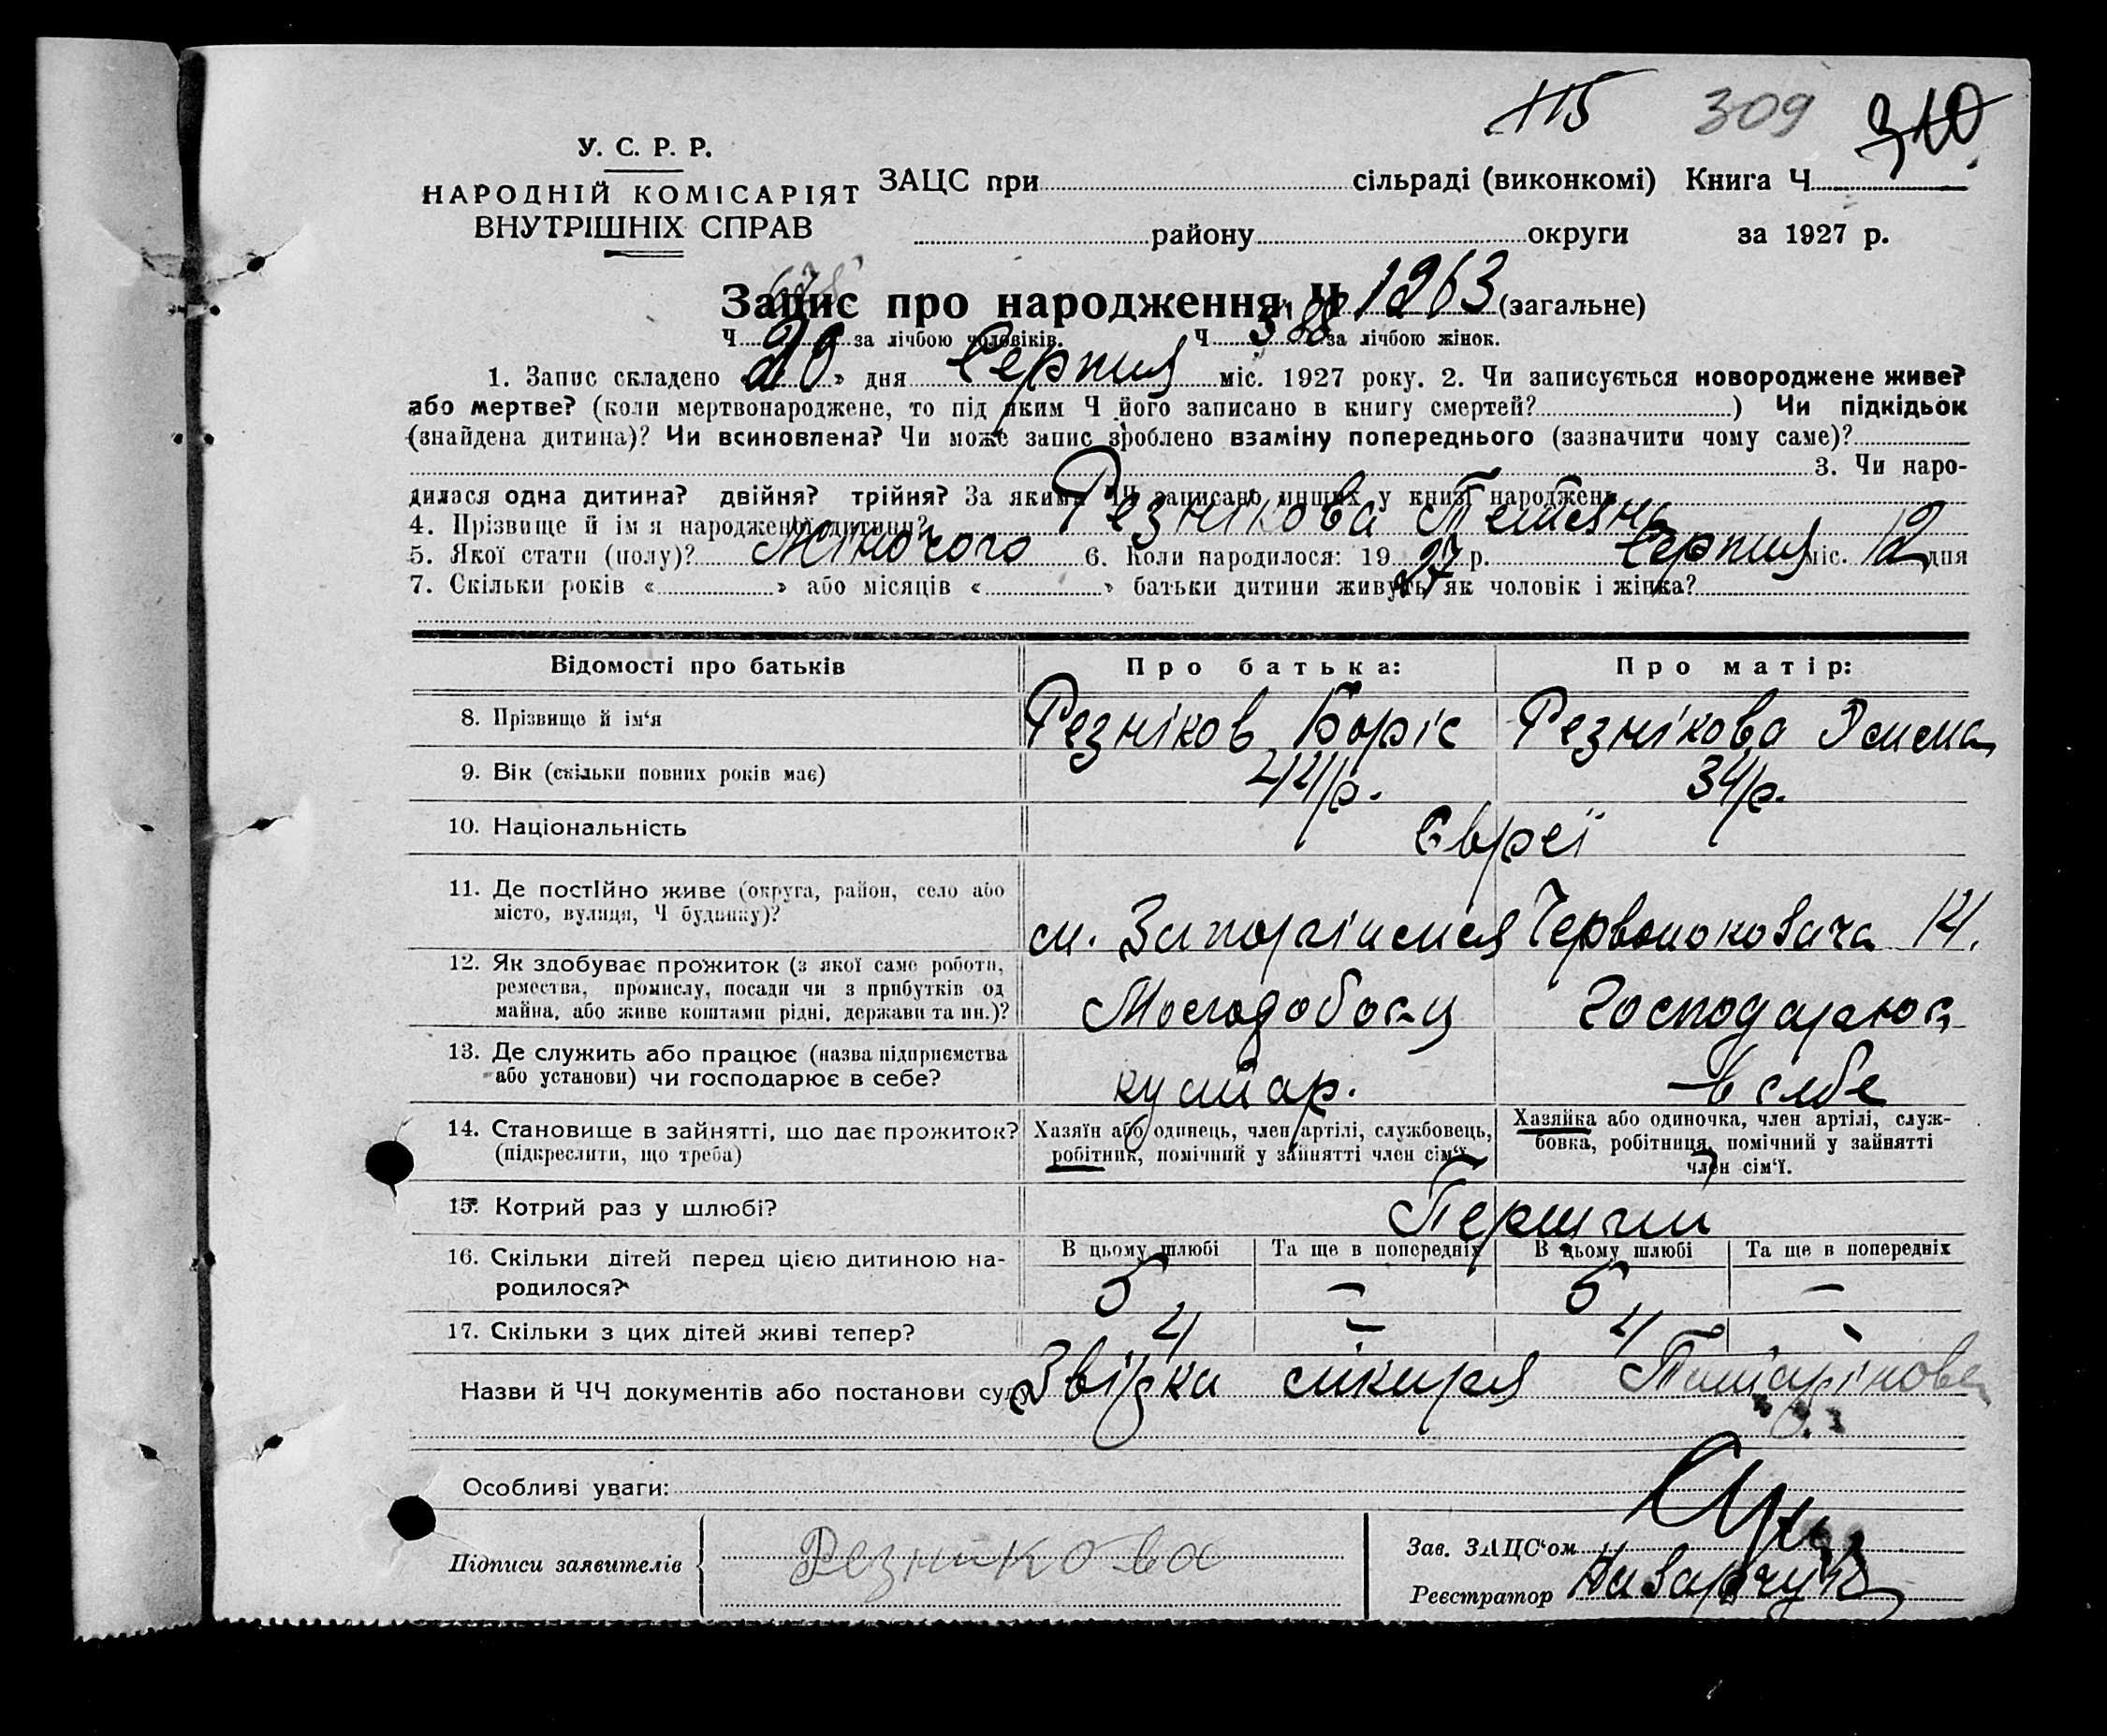 115 309 310
У. С. Р. Р.
НАРОДНІЙ КОМІСАРІЯТ
ВНУТРІШНІХ СПРАВ
ЗАЦС при сільраді (виконкомі) Книга Ч
району округи за 1927 р.
Запис про народження Ч 1263 (загальне)
Ч за лічбою чоловіків. Ч 588 за лічбою жінок.
1. Запис складено « 20 » дня Серпня міс. 1927 року. 2. Чи записується новороджене живе?
або мертве? (коли мертвонароджене, то під яким Ч його записано в книгу смертей? ) Чи підкідьок
(знайдена дитина)? Чи всиновлена? Чи може запис зроблено взаміну попереднього (зазначити чому саме)?
3. Чи наро-
дилася одна дитина? двійня? трійня? За якими ЧЧ записано инших у книзі народжень
4. Прізвище й ім'я народженої дитини? Резнікова Тетянь
5. Якої стати (полу)? Жіночого 6. Коли народилося: 19 27 р. Серпня міс. 12 дня
7. Скільки років « » або місяців « » батьки дитини живуть як чоловік і жінка?
Відомості про батьків Про батька: Про матір:
8. Прізвище й ім'я Резніков Боріс Резнікова
9. Вік (скільки повних років має) 44 р. 34 р.
10. Національність Євреї
11. Де постійно живе (округа, район, село або
місто, вулиця, Ч будинку)?
м. Запоріжжя Червонокозача 121.
12. Як здобуває прожиток (з якої саме роботи,
ремества, промислу, посади чи з прибутків од
майна, або живе коштами рідні, держави та ин.)?
Господарює
13. Де служить або працює (назва підприємства
або установи) чи господарює в себе?
кустар. в себе
14. Становище в зайнятті, що дає прожиток?
(підкреслити, що треба)
Хазяїн або одинець, член артілі, службовець,
робітник, помічний у зайнятті член сім'ї.
Хазяйка або одиночка, член артілі, служ-
бовка, робітниця, помічний у зайнятті
член сім'ї.
15. Котрий раз у шлюбі? Перший
16. Скільки дітей перед цією дитиною на-
родилося?
В цьому шлюбі Та ще в попередніх В цьому шлюбі Та ще в попередніх
5 – 5 –
17. Скільки з цих дітей живі тепер? 4 – 4 –
Назви й ЧЧ документів або постанови суду Звідка лікаря
Особливі уваги:
Підписи заявителів Резникова
Зав. ЗАЦС'ом
Реєстратор